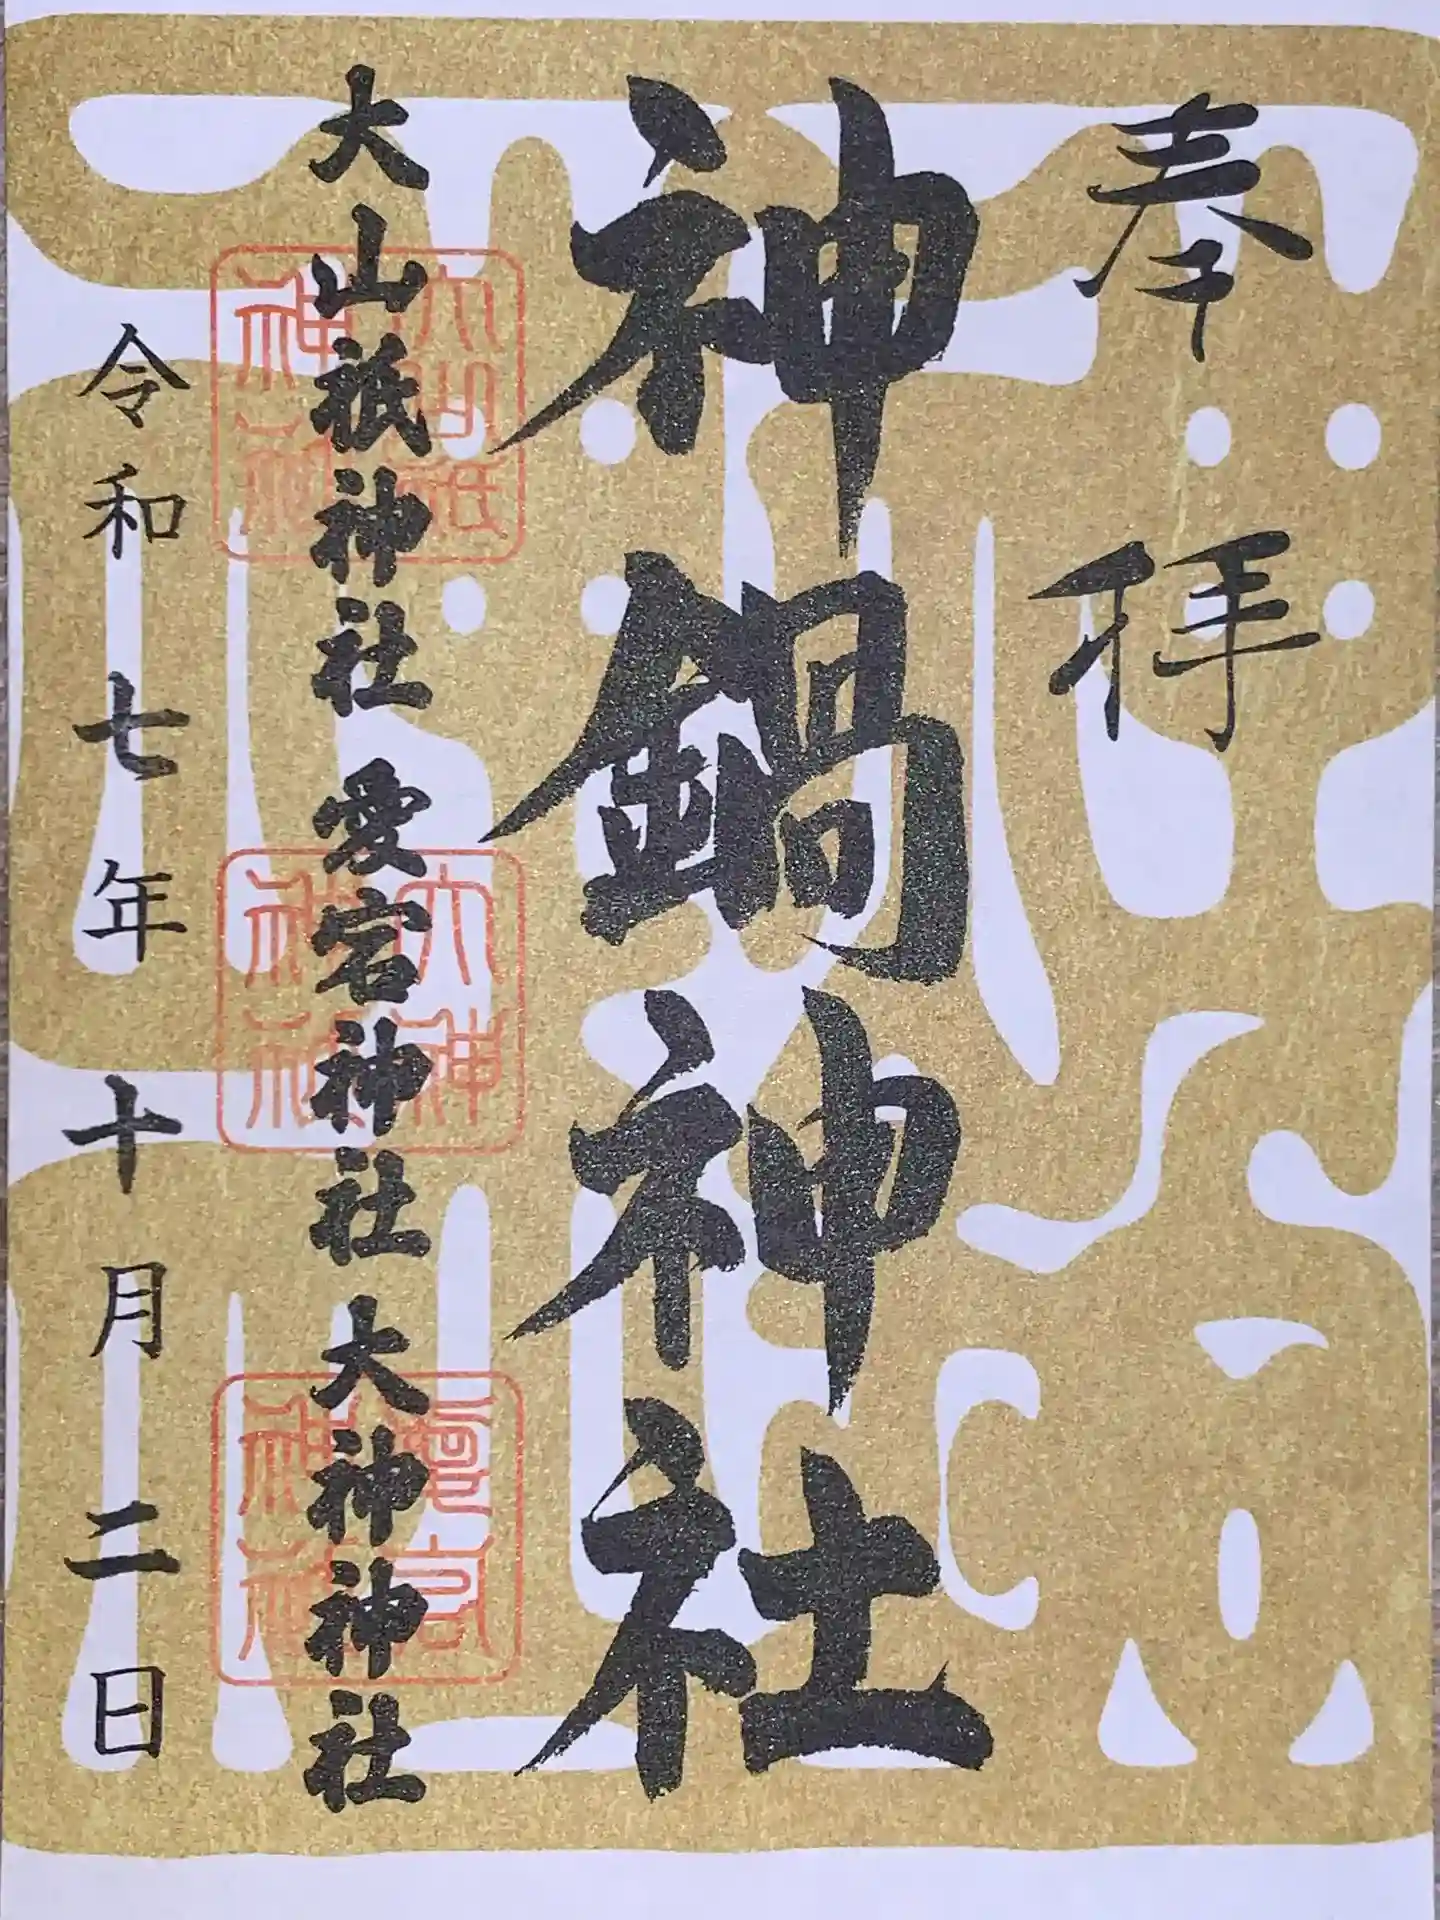 奉拝
神鍋神社
大山祇神社 愛宕神社 大神神社
大山祇神社
大神神社
愛宕神社
令和七年十月二日